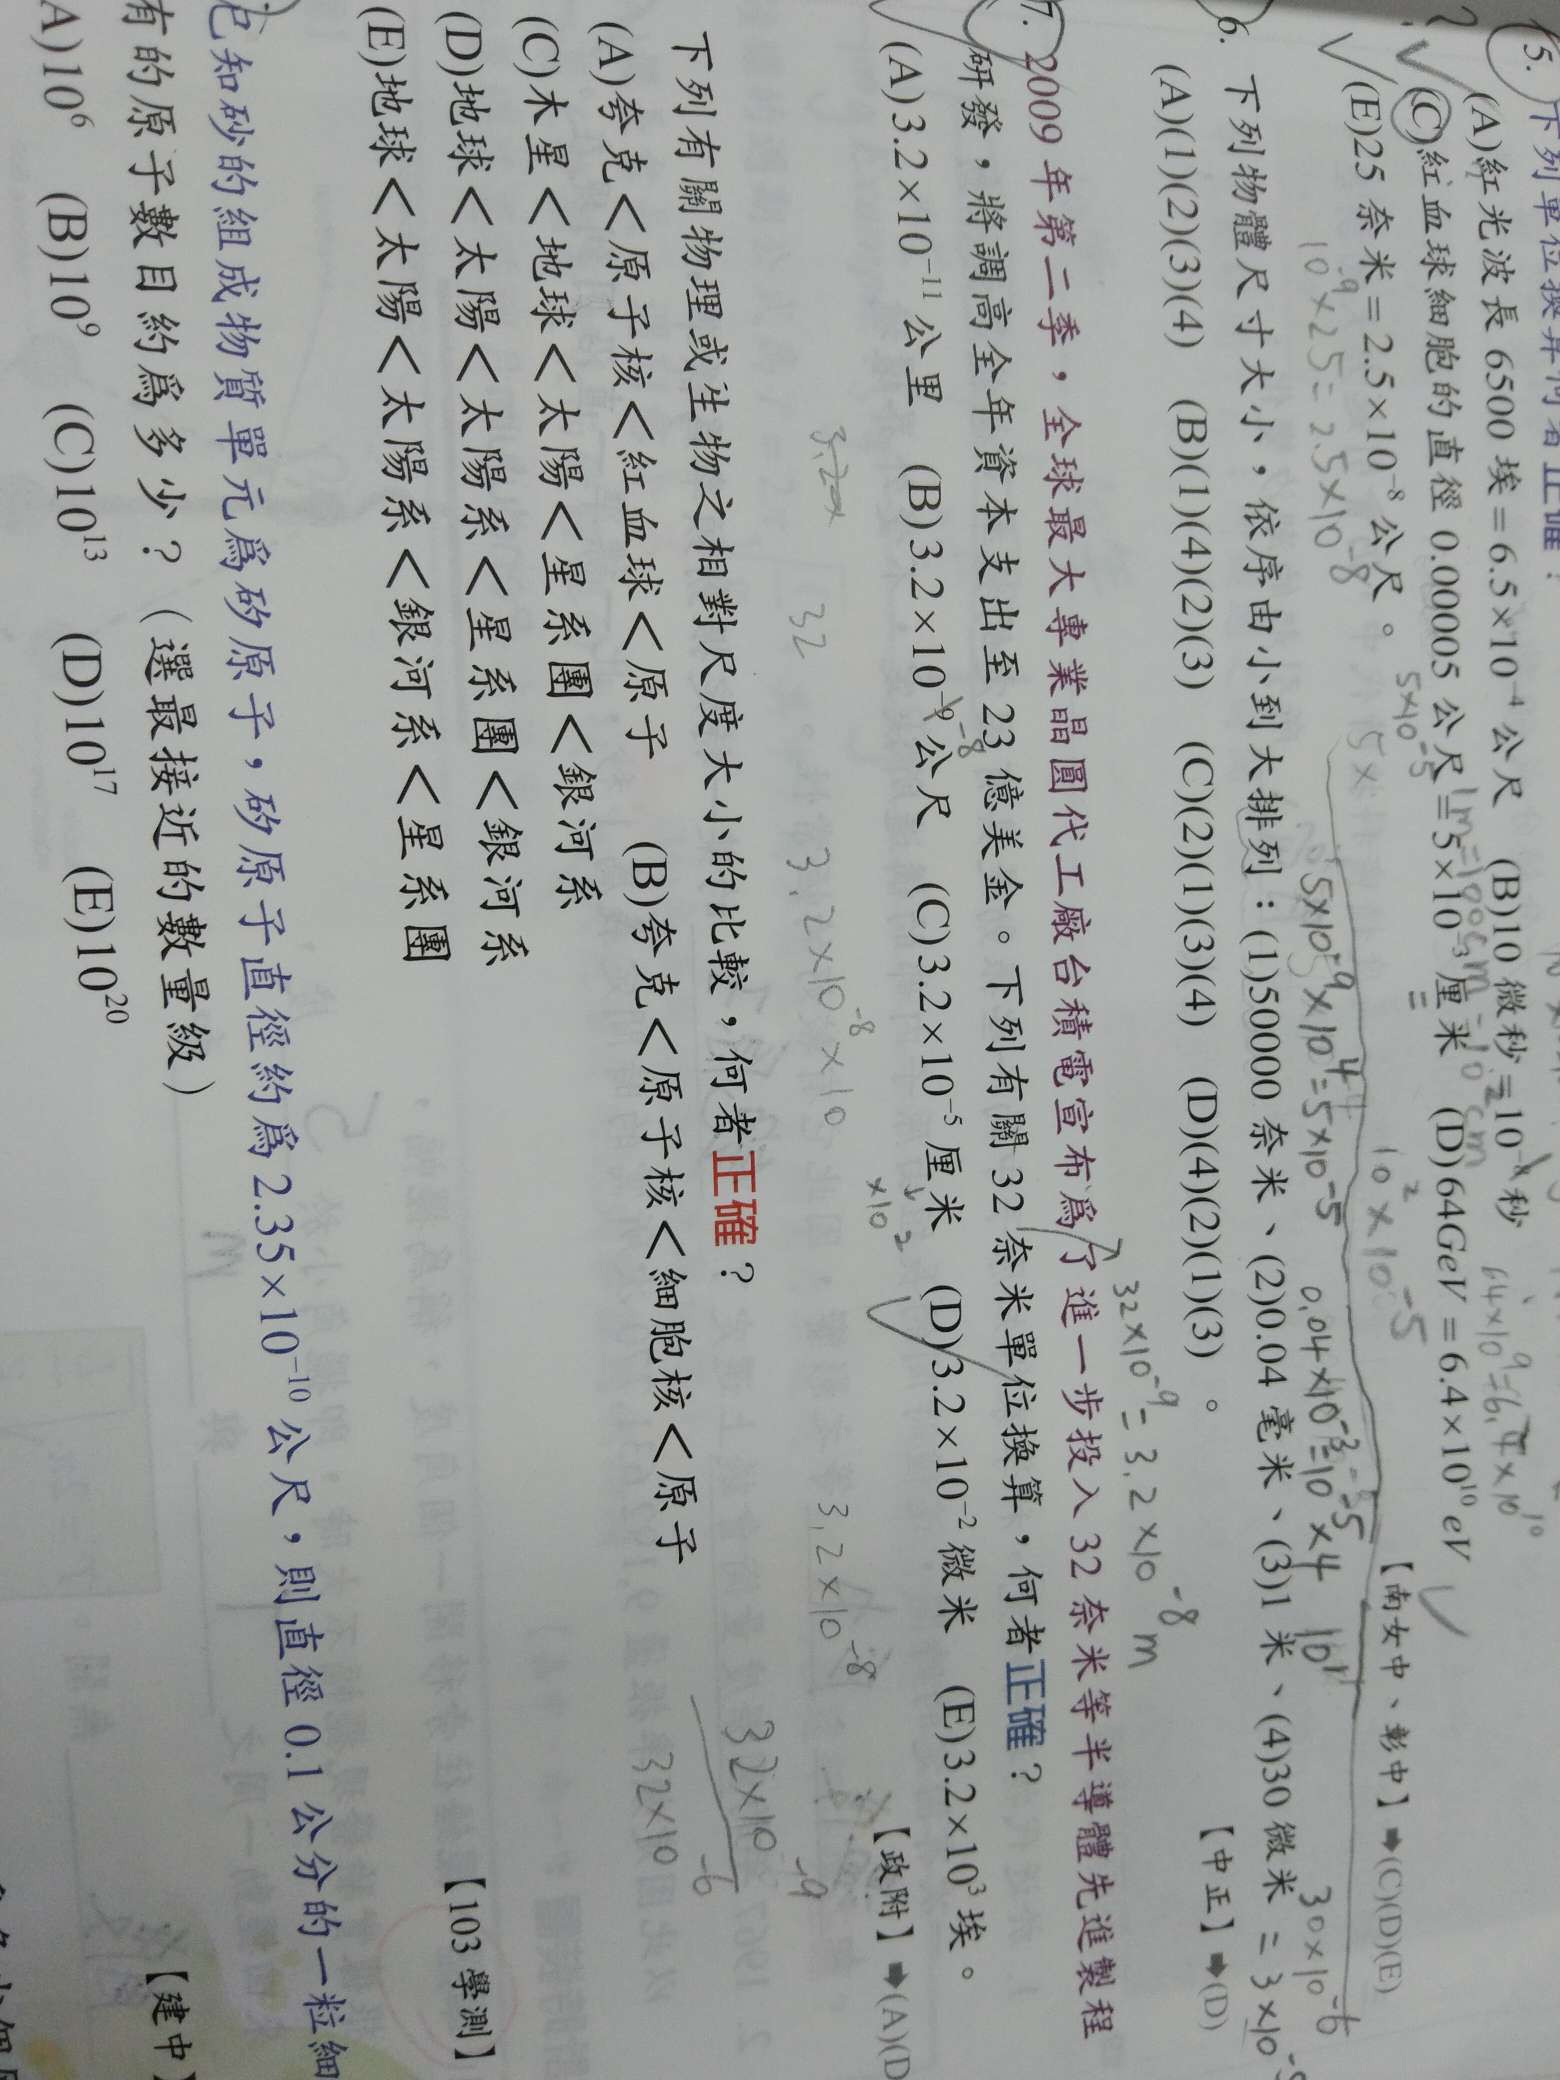 5. 下列單位換算何者正確：
(A)紅光波長 6500 埃＝6.5×10⁻⁴ 公尺 (B)10 微秒＝10⁻ 秒
(C)紅血球細胞的直徑 0.00005 公尺＝5×10⁻³ 厘米 (D)64GeV＝6.4×10¹⁰ eV
(E)25 奈米＝2.5×10⁻⁸ 公尺。 【南女中、彰中】➡(C)(D)(E)
10⁻⁹×25=2.5×10⁻⁸
5×10⁻⁵
1m=100cm=10²cm
64×10⁹=6.4×10¹⁰
10²×10⁻⁵
5×10⁻⁹×10⁴=5×10⁻⁵
0.04×10⁻³=10⁻⁵×4
30×10⁻⁶
=3×10⁻⁵
6. 下列物體尺寸大小，依序由小到大排列：(1)50000 奈米、(2)0.04 毫米、(3)1 米、(4)30 微米
(A)(1)(2)(3)(4) (B)(1)(4)(2)(3) (C)(2)(1)(3)(4) (D)(4)(2)(1)(3)。 【中正】➡(D)
32×10⁻⁹=3.2×10⁻⁸ m
7. 2009 年第二季，全球最大專業晶圓代工廠台積電宣布為了進一步投入 32 奈米等半導體先進製程
研發，將調高全年資本支出至 23 億美金。下列有關 32 奈米單位換算，何者正確？
(A)3.2×10⁻¹¹ 公里 (B)3.2×10⁻⁹ 公尺 (C)3.2×10⁻⁵ 厘米 (D)3.2×10⁻² 微米 (E)3.2×10³ 埃。
-8
×10²
【政附】➡(A)(D
32
3.2×10⁻⁸×10
3.2×10⁻⁸
32×10⁻⁹
32×10⁻⁶
下列有關物理或生物之相對尺度大小的比較，何者正確？
(A)夸克＜原子核＜紅血球＜原子 (B)夸克＜原子核＜細胞核＜原子
(C)木星＜地球＜太陽＜星系團＜銀河系
(D)地球＜太陽＜太陽系＜星系團＜銀河系
(E)地球＜太陽＜太陽系＜銀河系＜星系團 【103 學測】
已知矽的組成物質單元為矽原子，矽原子直徑約為 2.35×10⁻¹⁰ 公尺，則直徑 0.1 公分的一粒細
有的原子數目約為多少？（選最接近的數量級） 【建中】
A)10⁶ (B)10⁹ (C)10¹³ (D)10¹⁷ (E)10²⁰